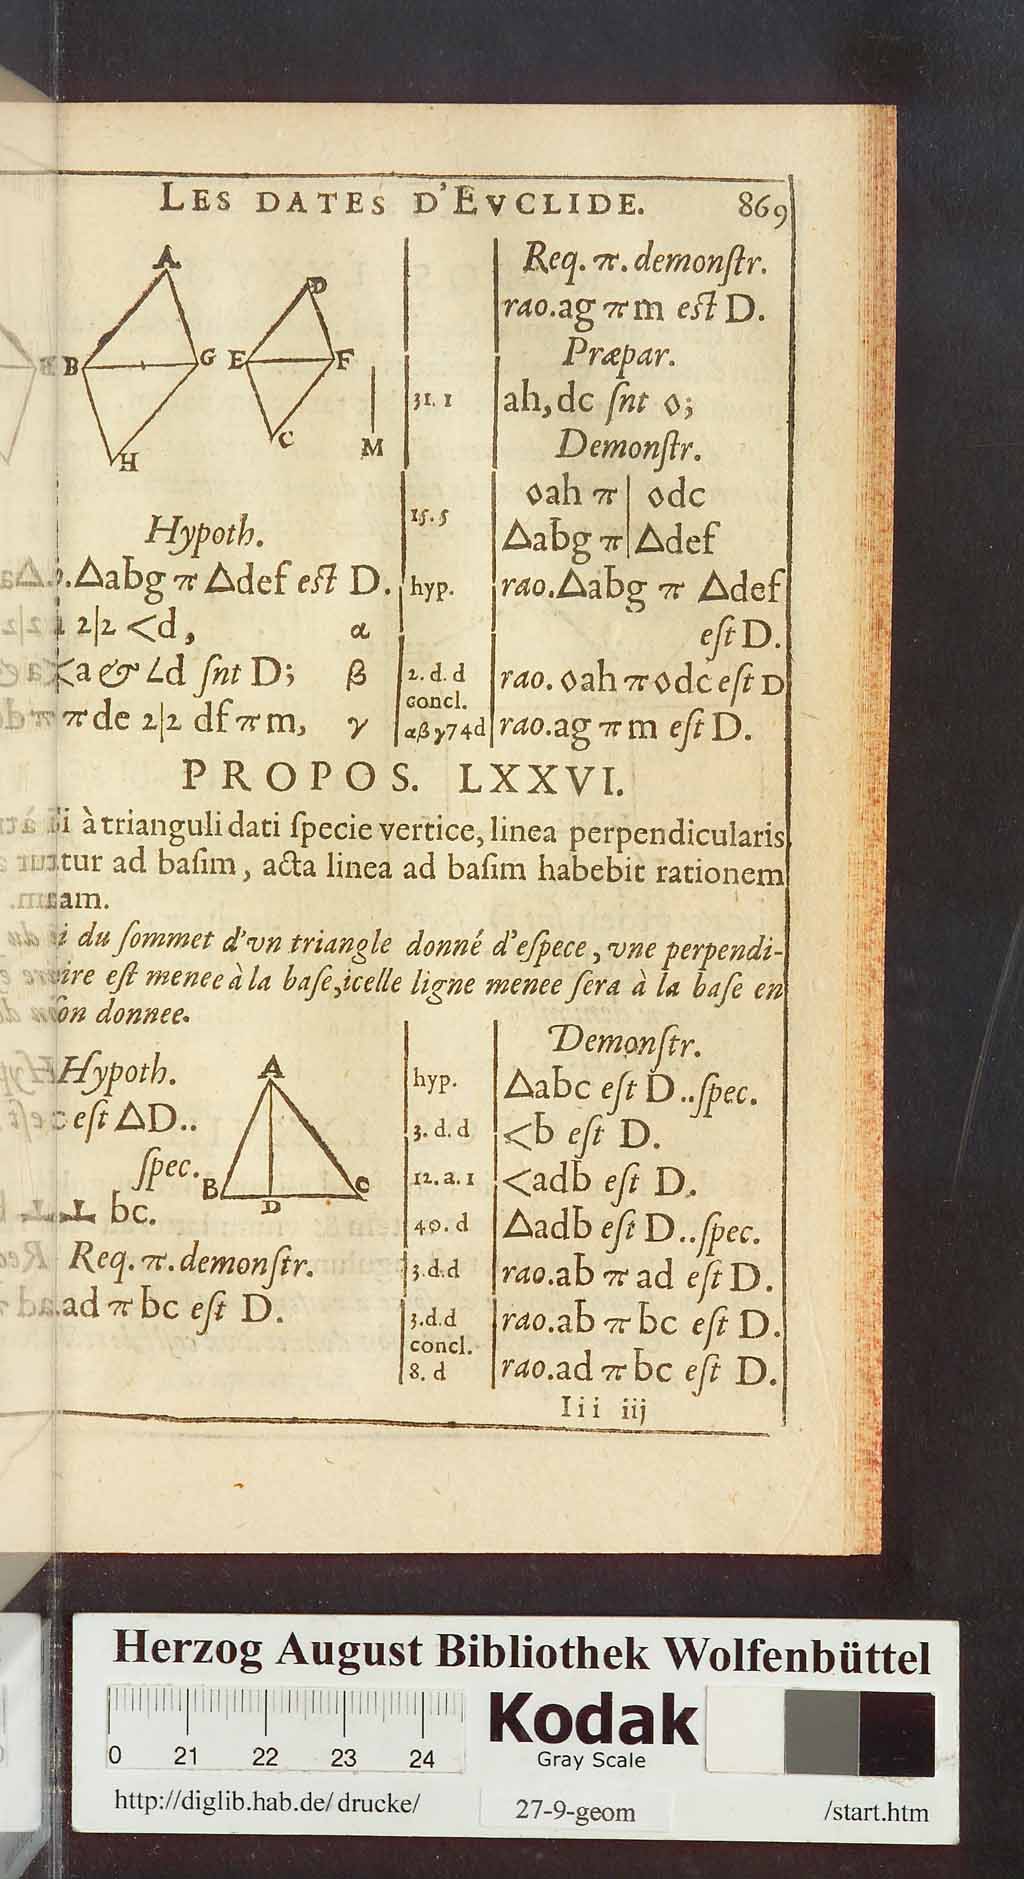 LES DATES D'EVCLIDE. 869
A
D
B
G
E
F
C
M
H
Hypoth.
.Δabg π Δdef est D.
2|2 <d, α
<a & ∠d snt D; β
π de 2|2 df π m, γ
Req. π. demonstr.
rao.ag π m est D.
Præpar.
31. 1 ah, dc snt ◊;
Demonstr.
15. 5 ◊ah π | ◊dc
Δabg π | Δdef
hyp. rao.Δabg π Δdef
est D.
2. d. d rao. ◊ah π ◊dc est D
concl.
αβγ74d rao.ag π m est D.
PROPOS. LXXVI.
i à trianguli dati specie vertice, linea perpendicularis
tur ad basim, acta linea ad basim habebit rationem
am.
i du sommet d'vn triangle donné d'espece, vne perpendi-
ire est menee à la base, icelle ligne menee sera à la base en
son donnee.
Hypoth.
c est ΔD..
spec.
⊥ bc.
Req. π. demonstr.
.ad π bc est D.
A
B
D
C
Demonstr.
hyp. Δabc est D..spec.
3. d. d <b est D.
12. a. 1 <adb est D.
40. d Δadb est D..spec.
3.d.d rao.ab π ad est D.
3.d.d rao.ab π bc est D.
concl.
8. d rao.ad π bc est D.
Iii iij
Herzog August Bibliothek Wolfenbüttel
0 21 22 23 24
Kodak
Gray Scale
http://diglib.hab.de/drucke/ 27-9-geom /start.htm